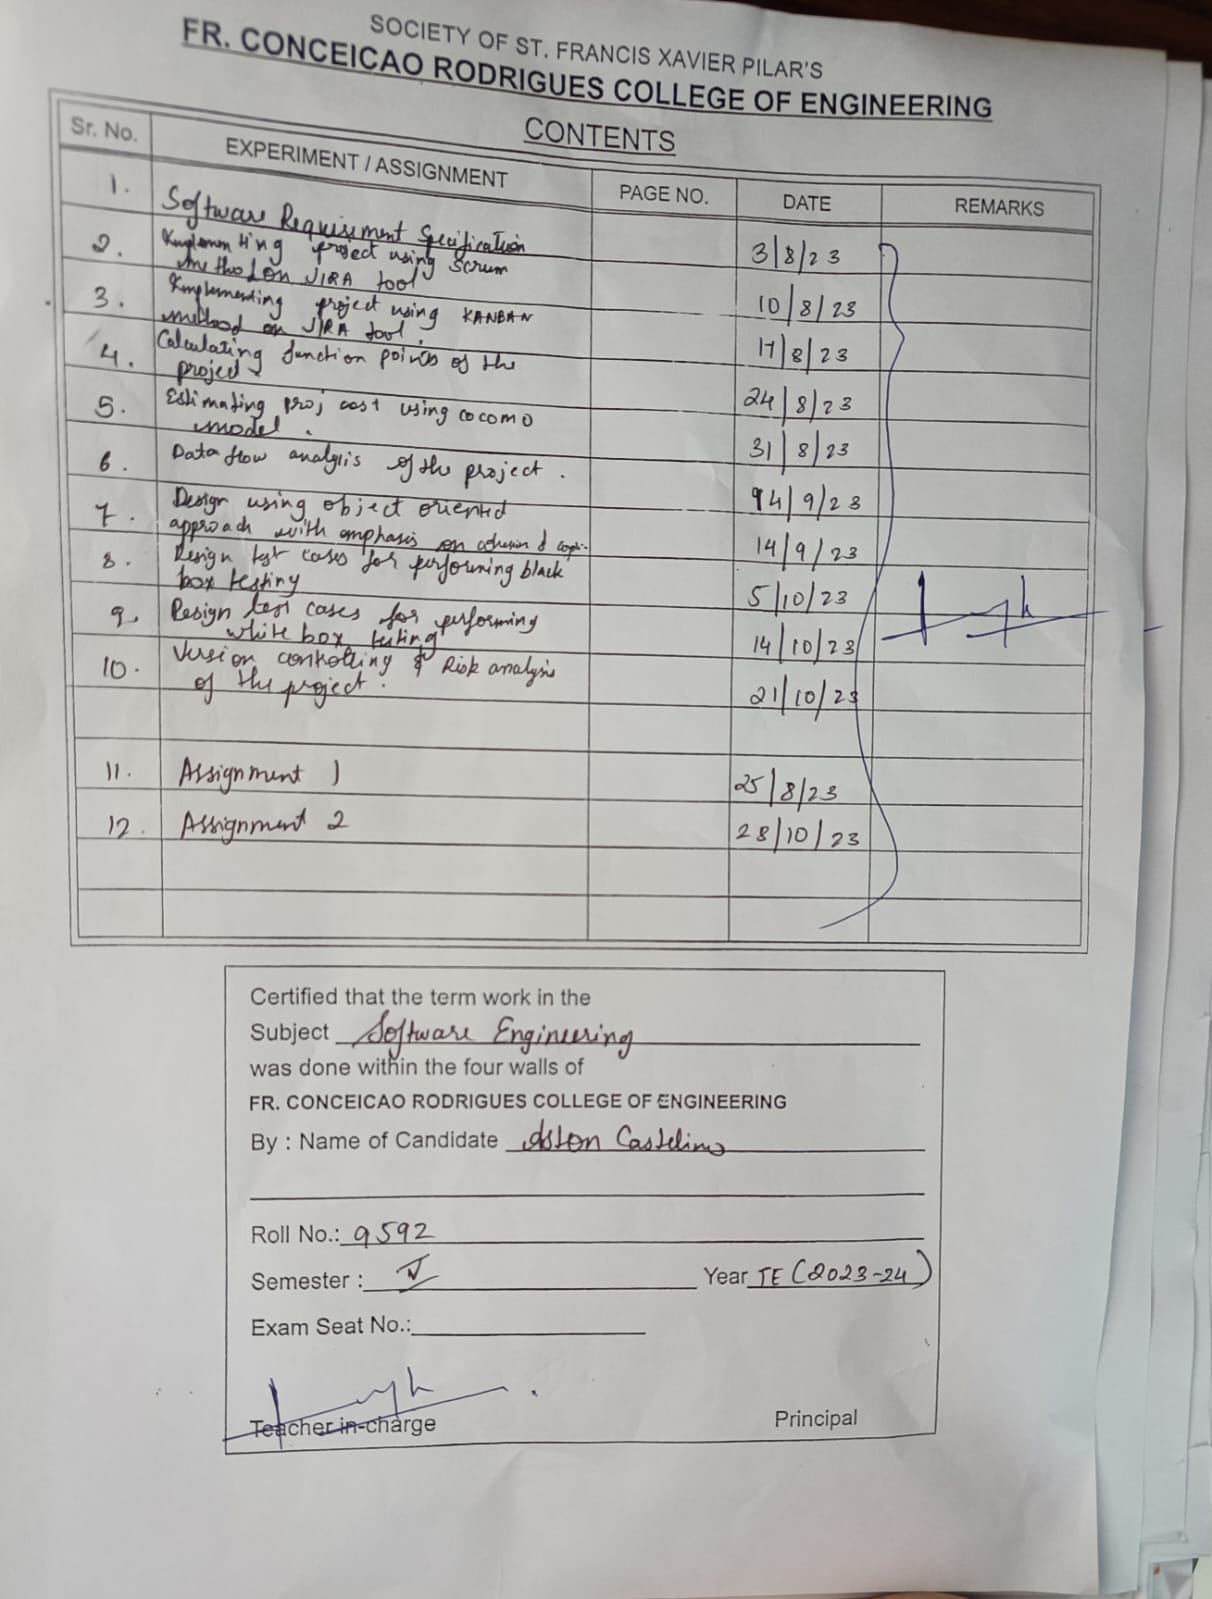 SOCIETY OF ST. FRANCIS XAVIER PILAR'S
FR. CONCEICAO RODRIGUES COLLEGE OF ENGINEERING
CONTENTS
Sr. No. EXPERIMENT / ASSIGNMENT PAGE NO. DATE REMARKS
1. Software Requirement Specification 3/8/23
2. Implementing project using Scrum
method on JIRA tool 10/8/23
3. Implementing project using KANBAN
method on JIRA tool. 17/8/23
4. Calculating function points of the
project 24/8/23
5. Estimating proj cost using COCOMO
model. 31/8/23
6. Data flow analysis of the project. 4/9/23
7. Design using object oriented
approach with emphasis on cohesion & 14/9/23
8. Design test cases for performing black
box testing 5/10/23
9. Design test cases for performing
white box testing 14/10/23
10. Version controlling & Risk analysis
of the project. 21/10/23
11. Assignment 1 25/8/23
12. Assignment 2 28/10/23
Certified that the term work in the
Subject Software Engineering
was done within the four walls of
FR. CONCEICAO RODRIGUES COLLEGE OF ENGINEERING
By : Name of Candidate Aston Castelino
Roll No.: 9592
Semester : V Year TE (2023-24)
Exam Seat No.:
Teacher in-charge Principal